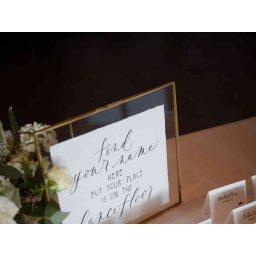 find
your name
HERE
BUT YOUR PLACE
IS ON THE
dancefloor